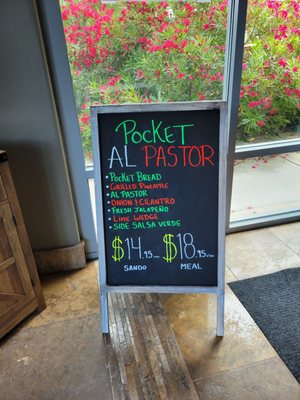 Pocket
AL PASTOR
• Pocket Bread
• Grilled Pineapple
• Al Pastor
• Onion & Cilantro
• Fresh Jalapeño
• Lime Wedge
• Side Salsa Verde
$14.95/pm $18.95/pm
SANDO MEAL